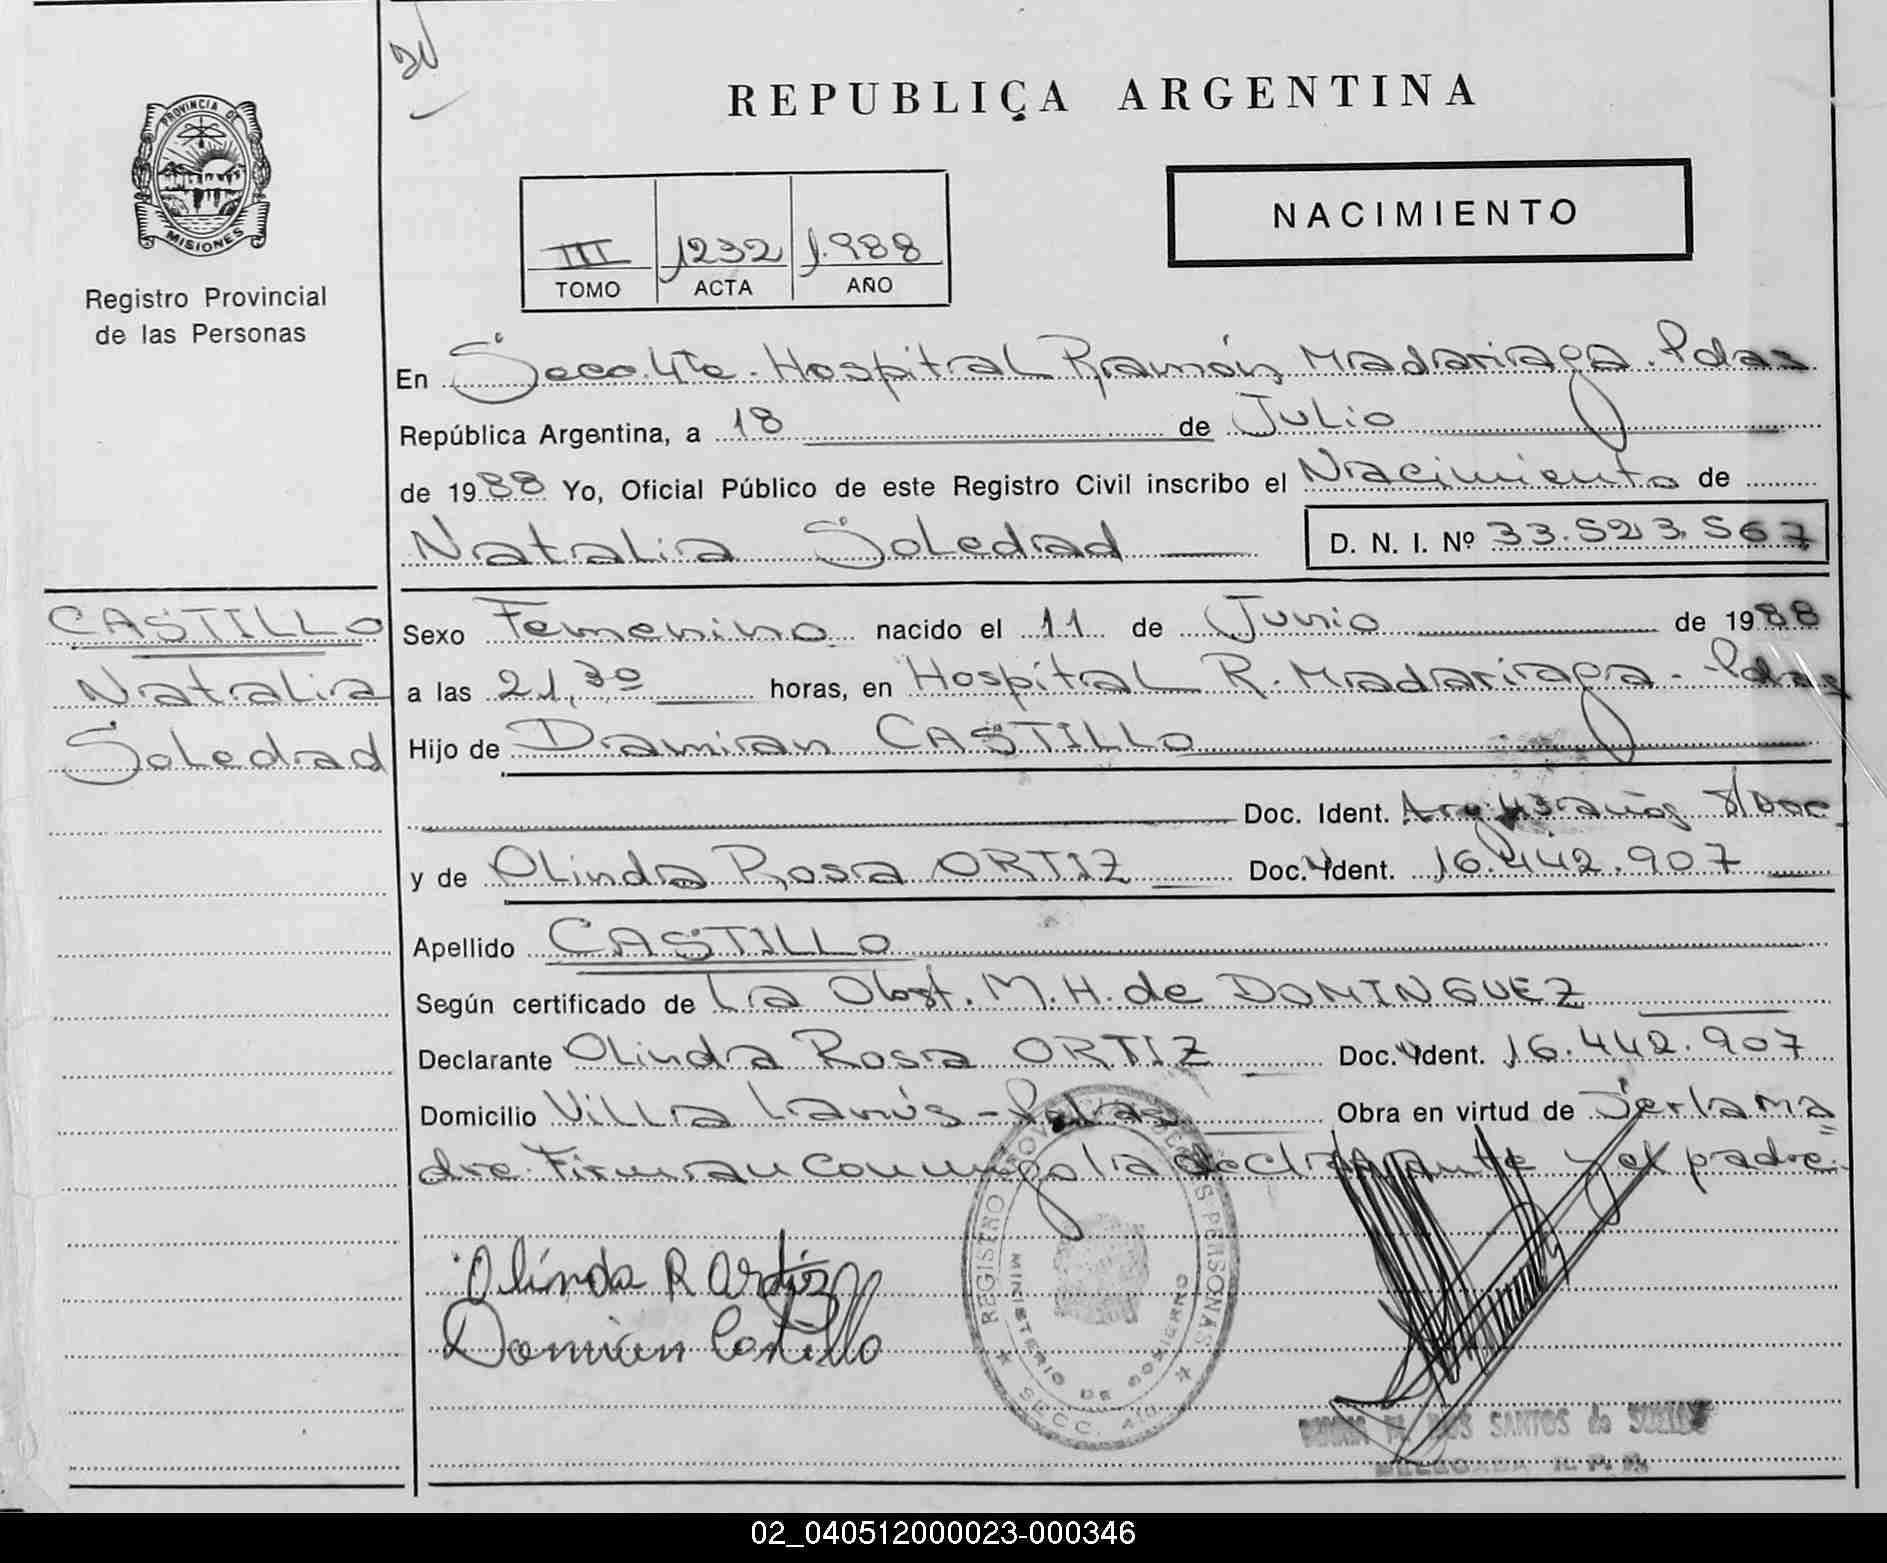 REPUBLICA ARGENTINA
PROVINCIA DE
MISIONES
Registro Provincial
de las Personas
NACIMIENTO
III 1232 1.988
TOMO ACTA AÑO
En Secc. 4ta. Hospital Ramón Madariaga. Pdas
República Argentina, a 18 de Julio
de 1988 Yo, Oficial Público de este Registro Civil inscribo el Nacimiento de
Natalia Soledad D. N. I. Nº 33.523.567
CASTILLO
Natalia
Soledad
Sexo Femenino nacido el 11 de Junio de 1988
a las 21,30 horas, en Hospital R. Madariaga - Pdas
Hijo de Damian CASTILLO
Doc. Ident. Arg. 43 años S/Doc
y de Olinda Rosa ORTIZ Doc. Ident. 16.442.907
Apellido CASTILLO
Según certificado de La Obst. M. H. de DOMINGUEZ
Declarante Olinda Rosa ORTIZ Doc. Ident. 16.442.907
Domicilio Villa Lanús - Pdas Obra en virtud de Ser la ma
dre. Firman conmigo la declarante y el padre.
Olinda R Ortiz
Damian Castillo
REGISTRO PROVINCIAL DE LAS PERSONAS
MINISTERIO DE GOBIERNO
SECC. 4ta
DOS SANTOS de
DELEGADA
02_040512000023-000346